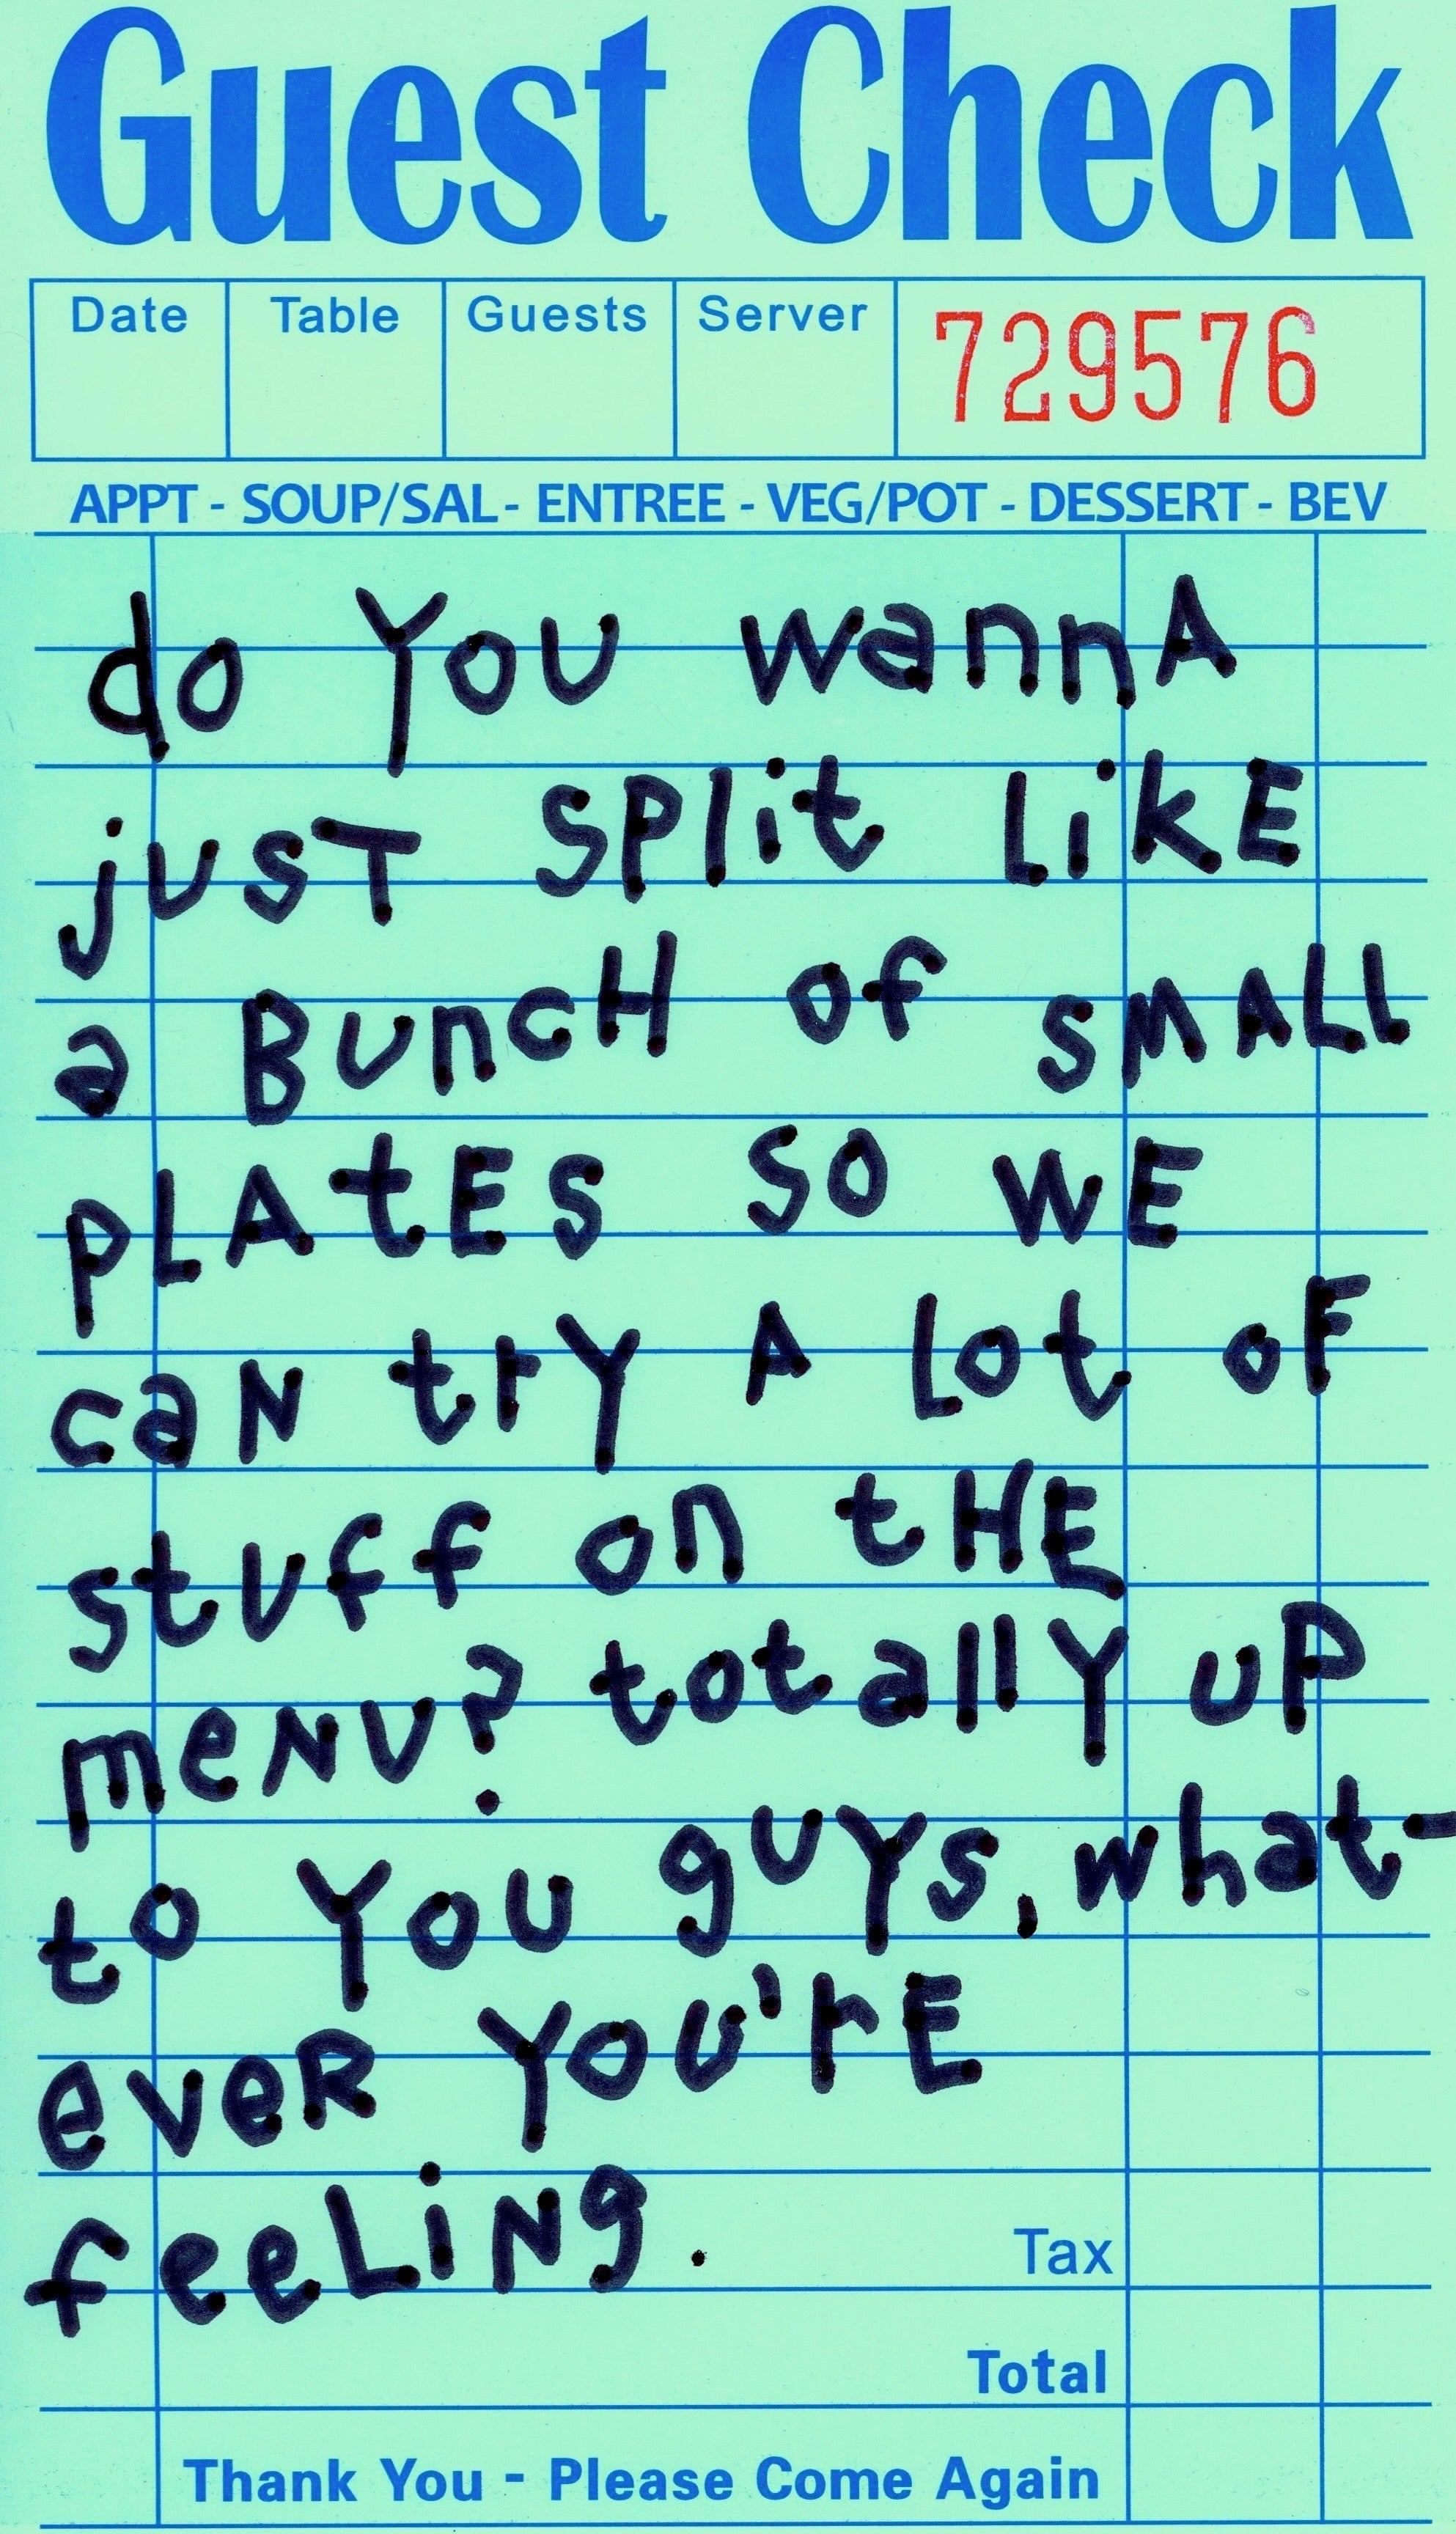 Guest Check
Date Table Guests Server 729576
APPT - SOUP/SAL - ENTREE - VEG/POT - DESSERT - BEV
do YoU wannA
jUST SPlit LikE
a BUncH of SMALL
pLAtES SO WE
caN trY A Lot oF
stUff on tHE
meNU? totallY uP
to YoU gUYs, what-
eveR YoU'rE
feeLiNg.
Tax
Total
Thank You - Please Come Again